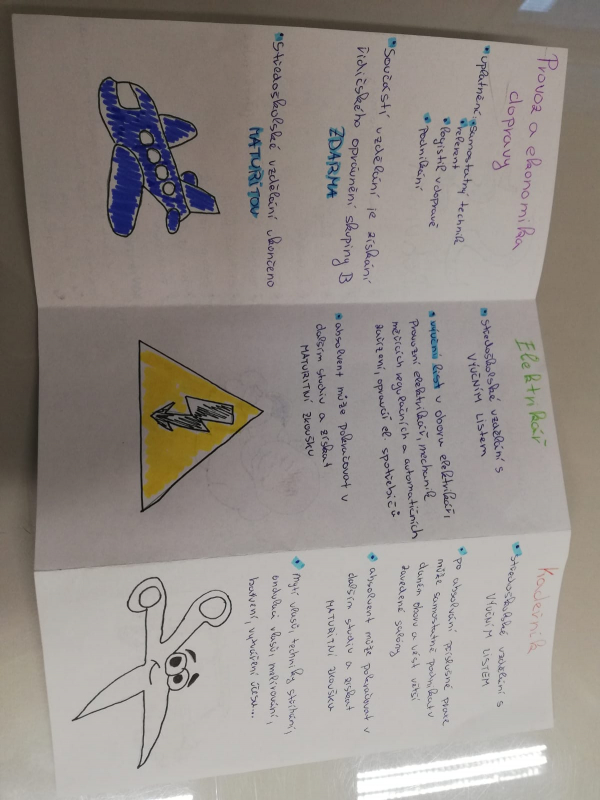 Provoz a ekonomika
dopravy
• uplatnění: • samostatný technik
• referent
• logistik v dopravě
• podnikání
• Součástí vzdělání je získání
řidičského oprávnění skupiny B
ZDARMA
• Středoškolské vzdělání ukončeno
MATURITOU
Elektrikář
• středoškolské vzdělání s
VÝUČNÍM LISTEM
• výuční list v oboru elektrikář,
Provozní elektrikář, mechanik
měřících regulačních a automatických
zařízení, opravář el. spotřebičů
• absolvent může pokračovat v
dalším studiu a získat
MATURITNÍ ZKOUŠKU
Kadeřník
• středoškolské vzdělání s
VÝUČNÍM LISTEM
• po absolvování příslušné praxe
může samostatně podnikat v
daném oboru a vést větší
zavedené salóny
• absolvent může pokračovat v
dalším studiu a získat
MATURITNÍ ZKOUŠKU
• mytí vlasů, techniky stříhání,
ondulaci vlasů, melírování,
barvení, vytváření účesu...